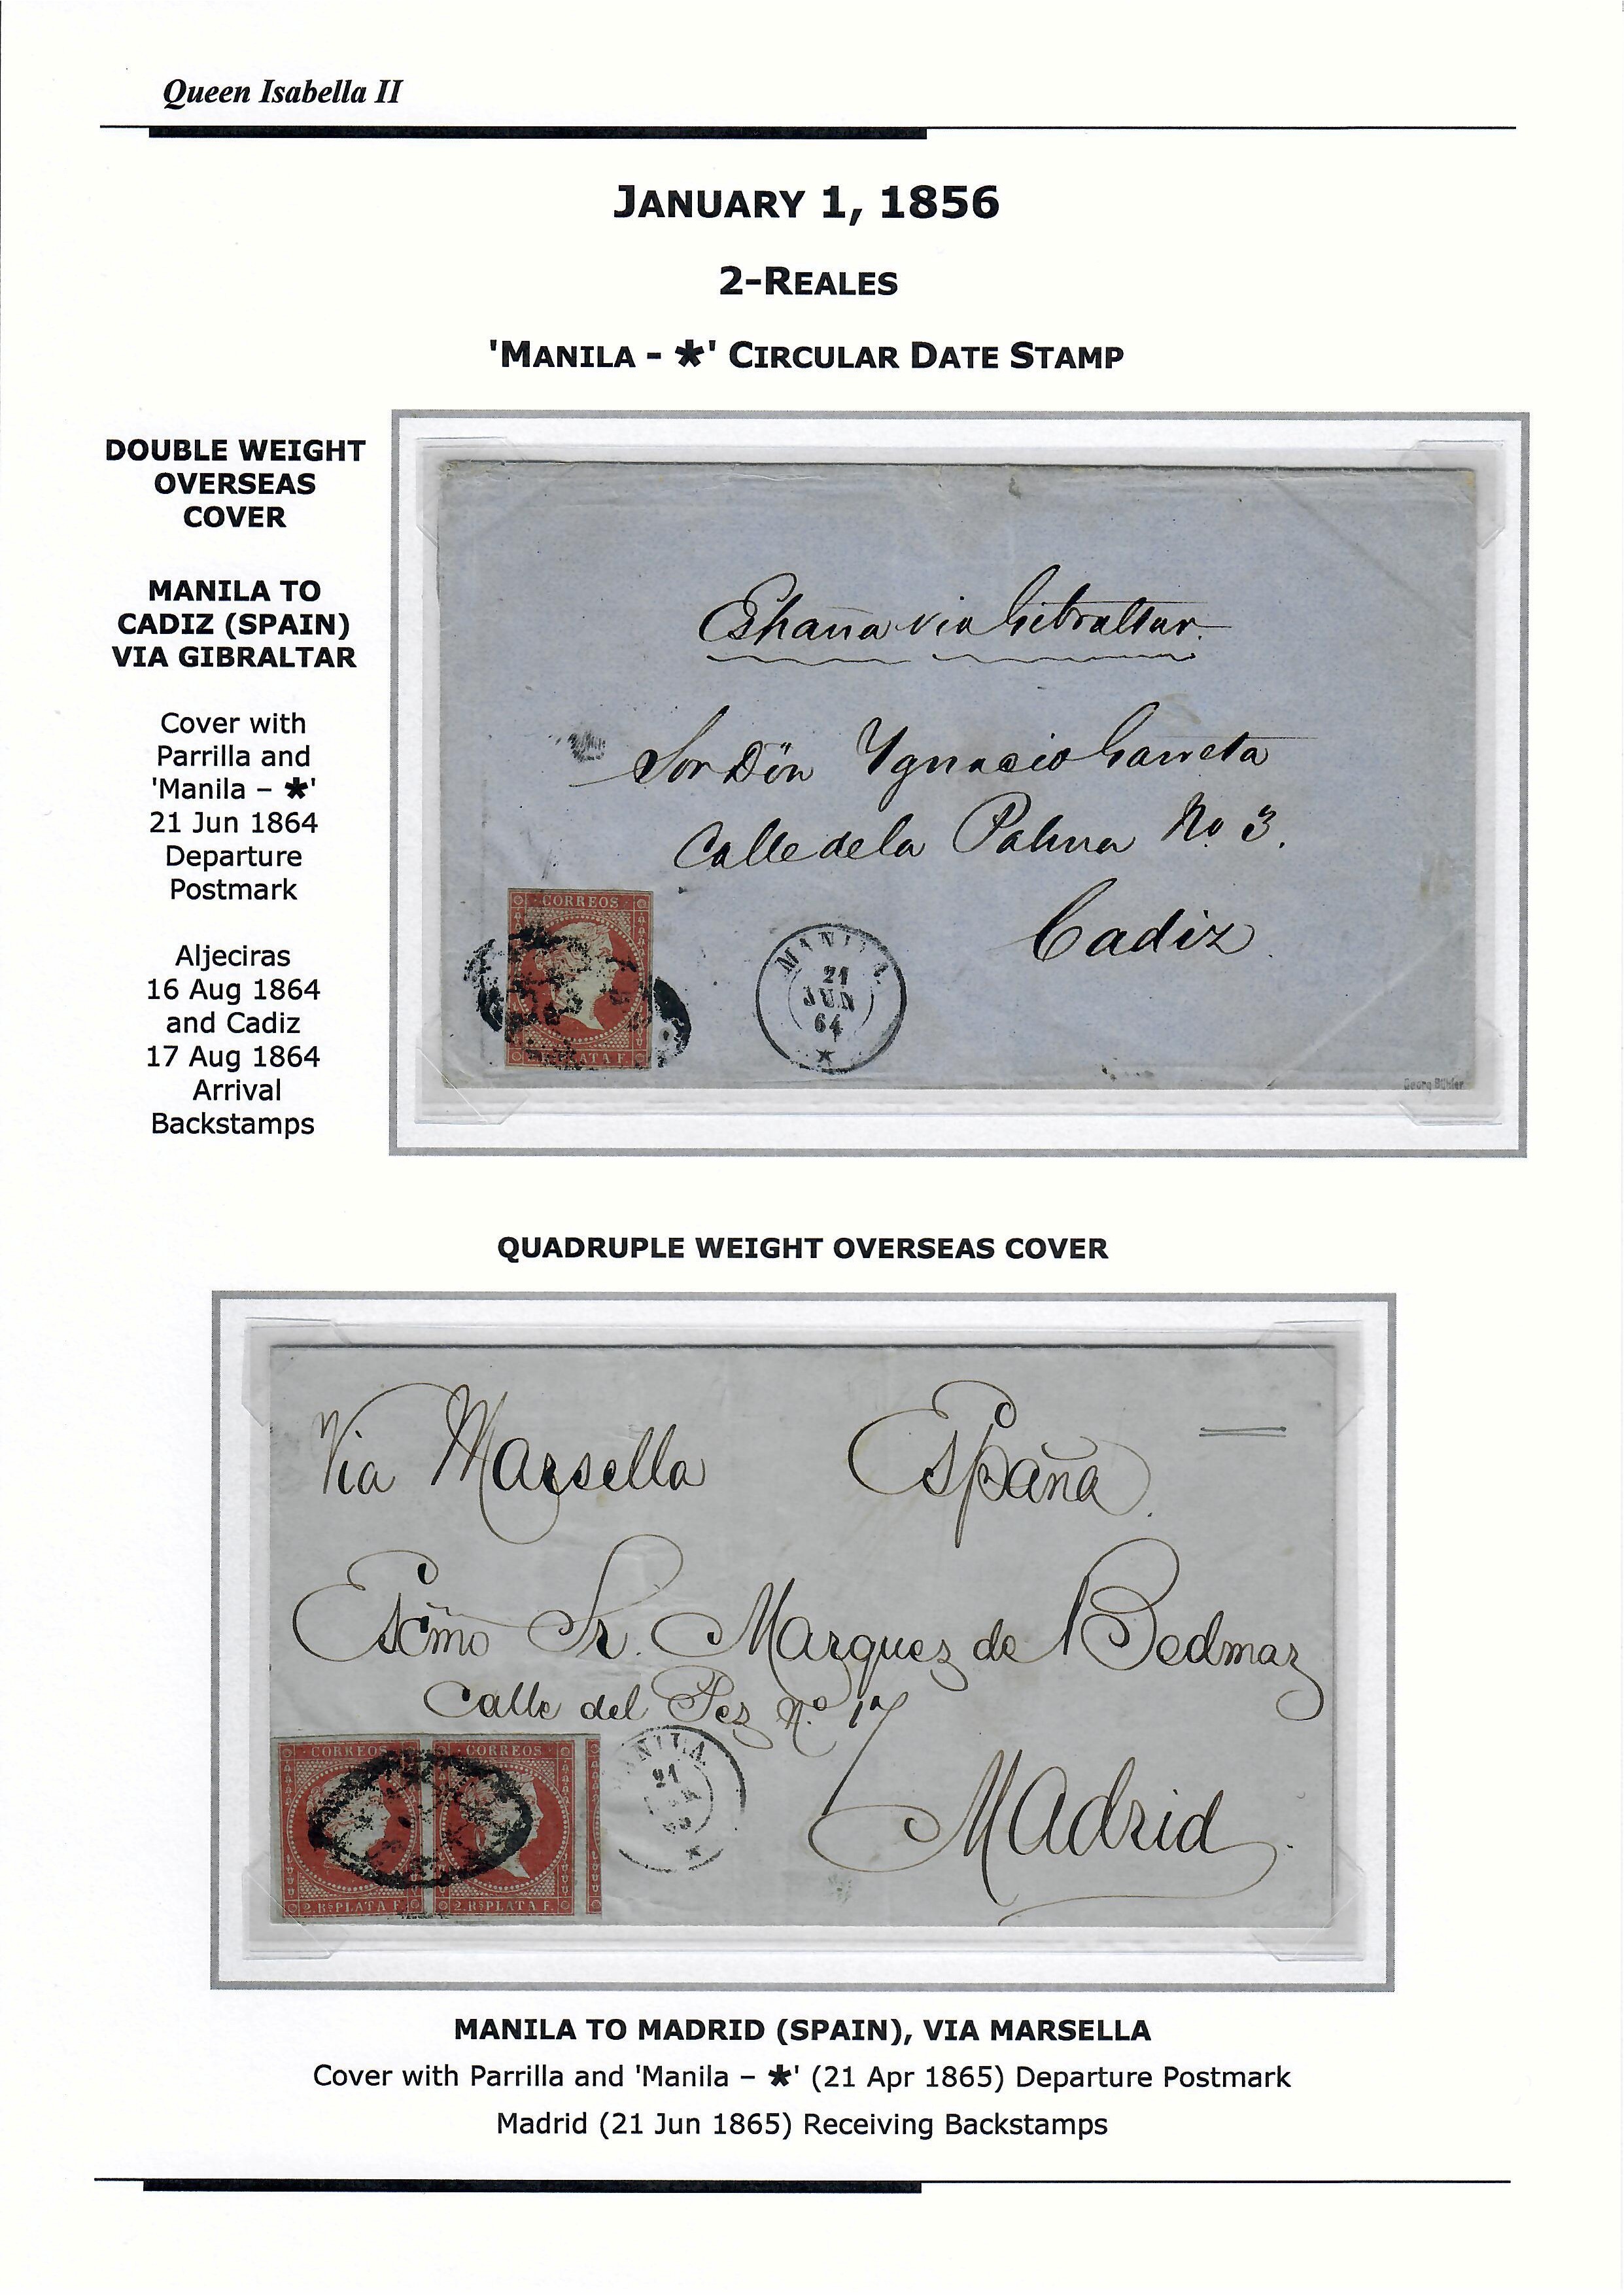 Queen Isabella II
JANUARY 1, 1856
2-REALES
'MANILA - *' CIRCULAR DATE STAMP
DOUBLE WEIGHT
OVERSEAS
COVER
MANILA TO
CADIZ (SPAIN)
VIA GIBRALTAR
Cover with
Parrilla and
'Manila – *'
21 Jun 1864
Departure
Postmark
Aljeciras
16 Aug 1864
and Cadiz
17 Aug 1864
Arrival
Backstamps
España via Gibraltar.
Sor Dön Ygnacio Garreta
Calle de la Palma No 3.
Cadiz
CORREOS
PLATA F.
MANILA
21
JUN
64
Georg Bühler
QUADRUPLE WEIGHT OVERSEAS COVER
Via Marsella España.
Escmo Sr. Marquez de Bedmaz
Calle del Pez No. 17
Madrid.
CORREOS CORREOS
2.Rs PLATA F. 2.Rs PLATA F.
MANILA
21
MANILA TO MADRID (SPAIN), VIA MARSELLA
Cover with Parrilla and 'Manila – *' (21 Apr 1865) Departure Postmark
Madrid (21 Jun 1865) Receiving Backstamps